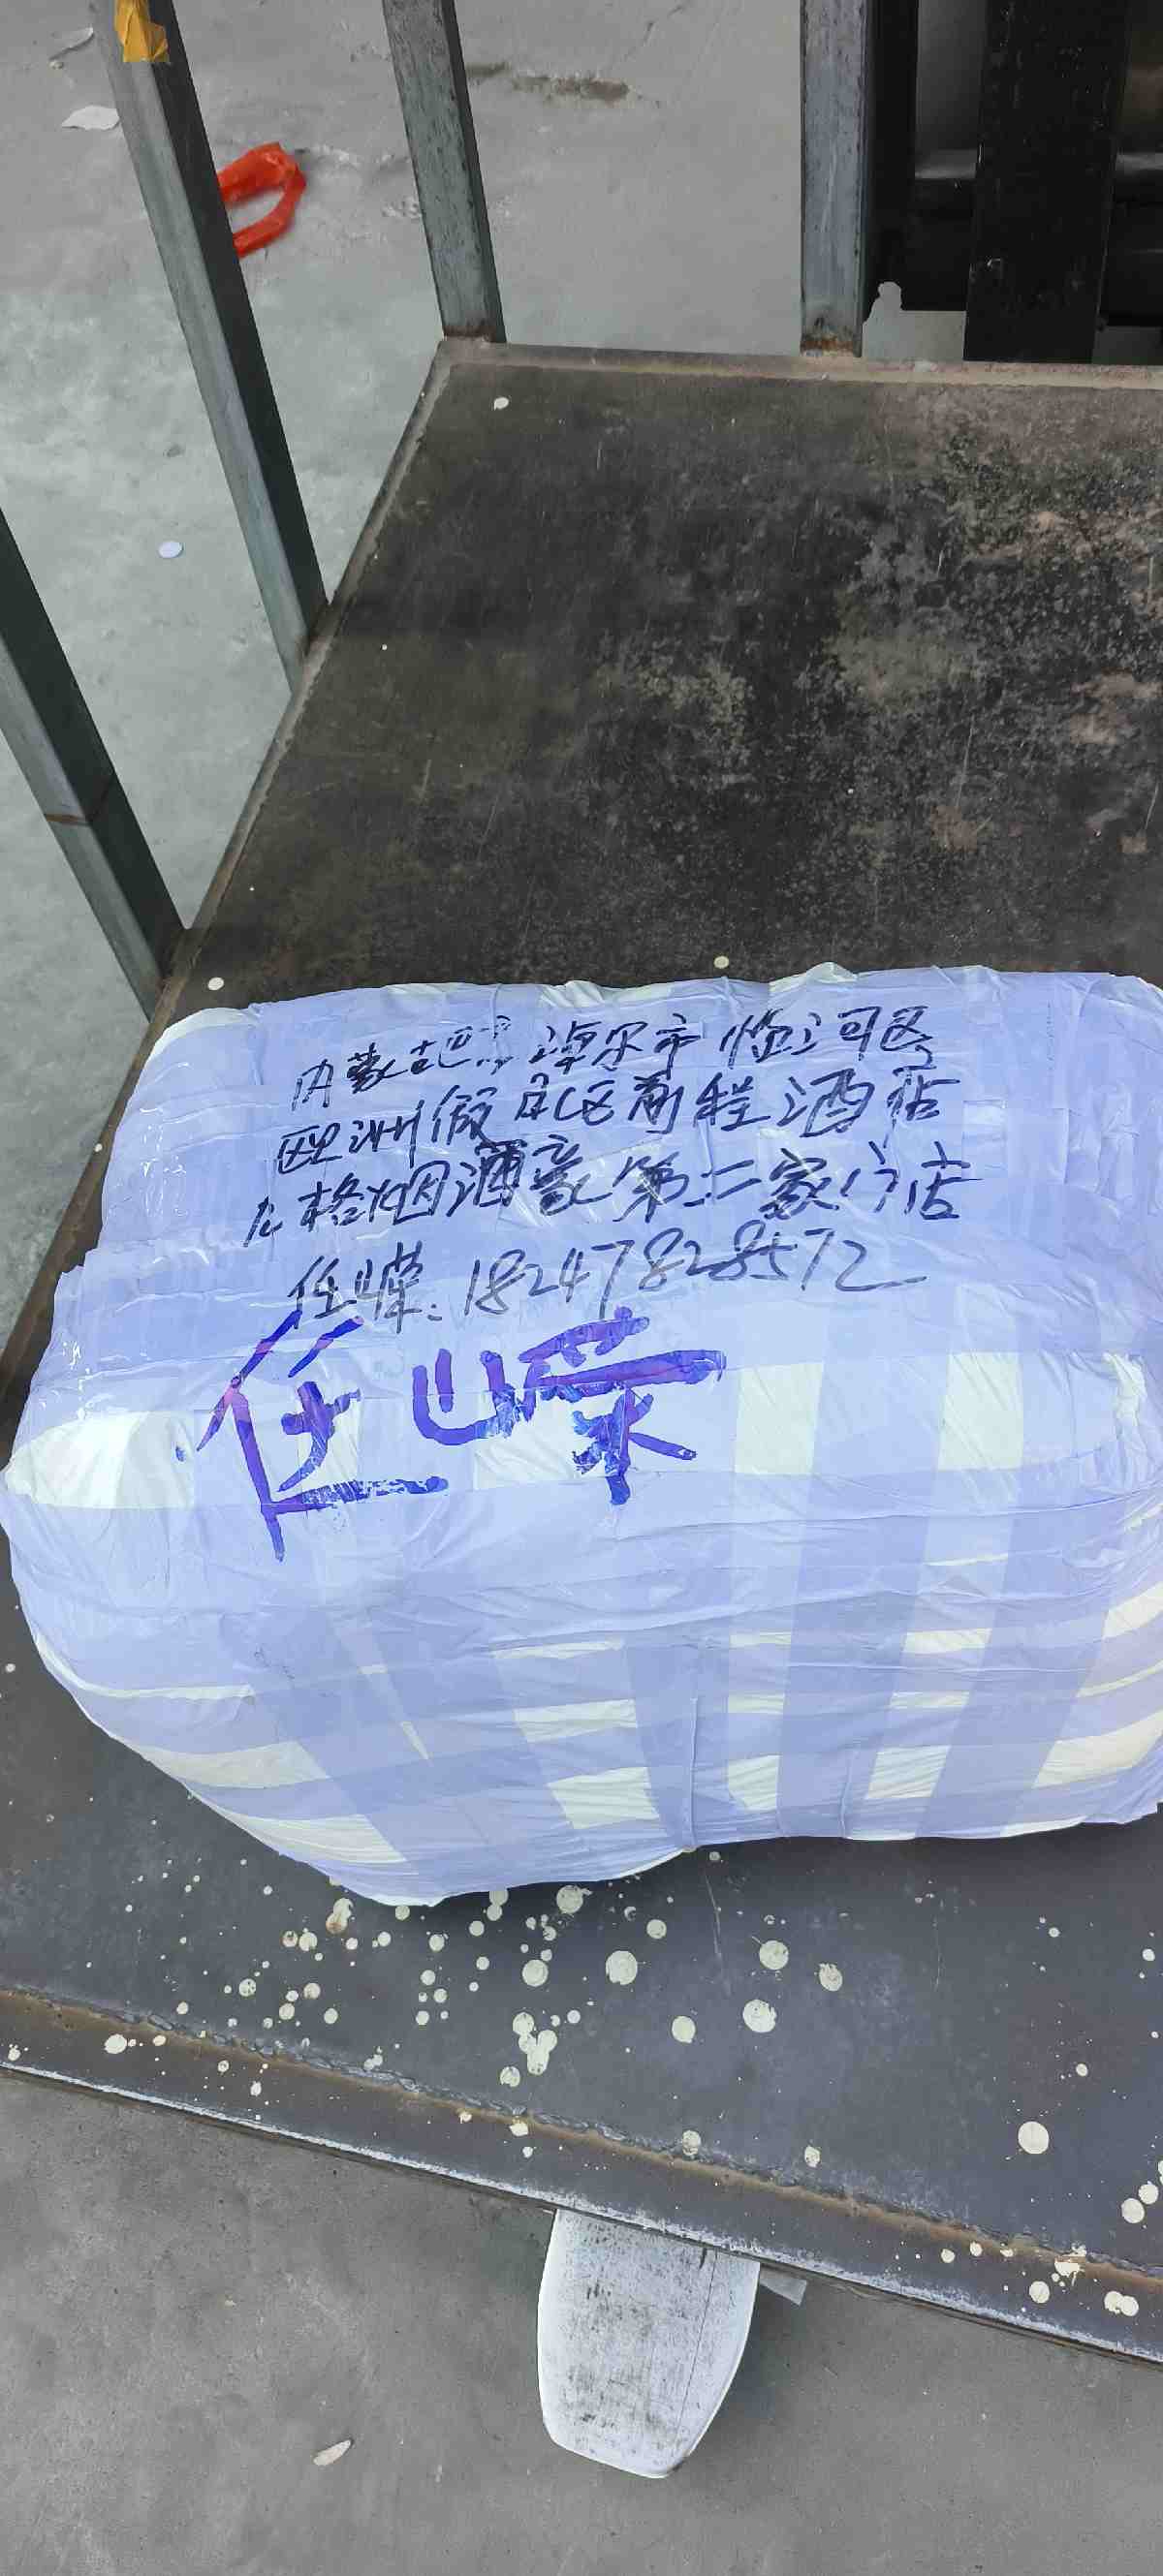 内蒙古巴彦淖尔市临河区
欧洲假日C区前程酒店
九格烟酒豪第二家门店
任嵘.18247828572
任嵘